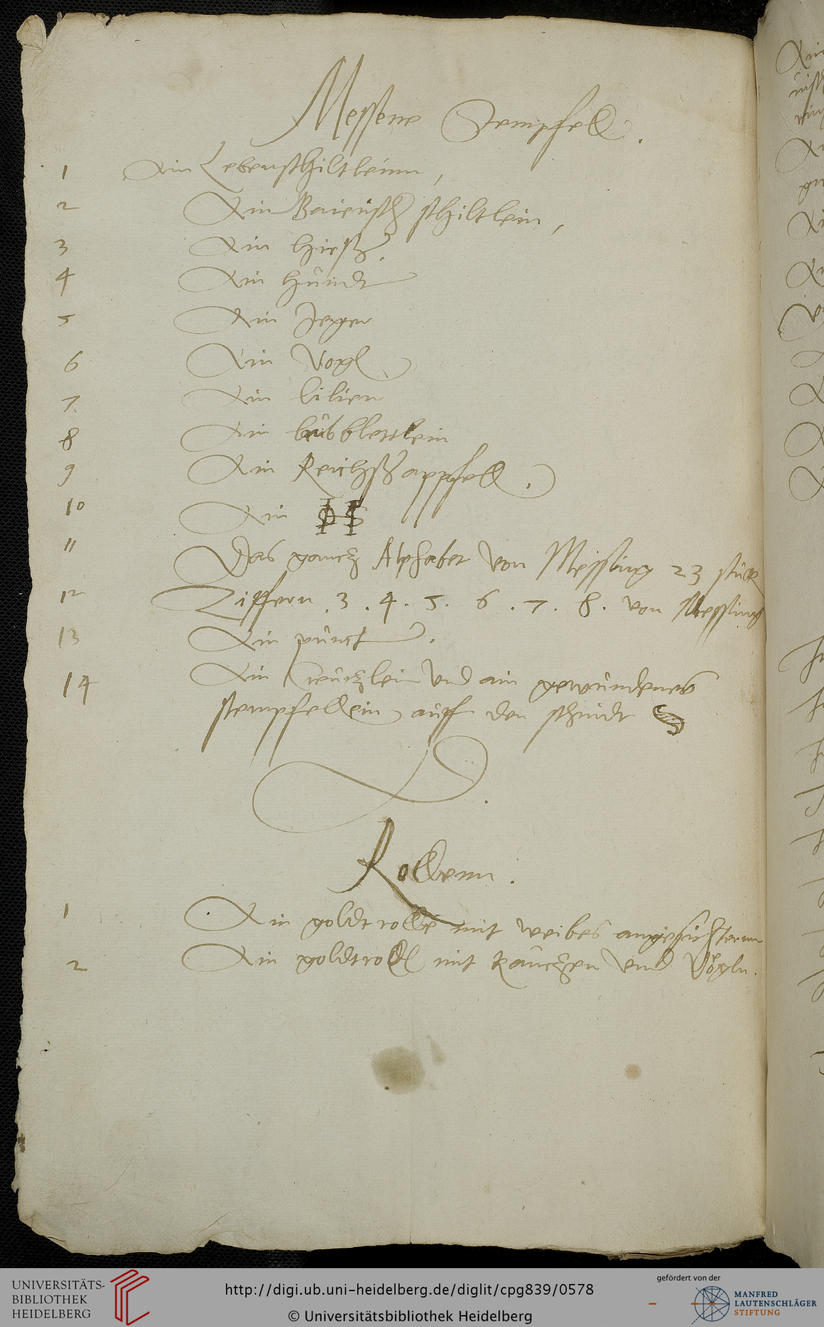 Messene Stempfell.
1 Ain Lebenschiltleinn,
2 Ain Baierisch schiltlein,
3 Ain hirsch,
4 Ain hundt
5 Ain Jeger
6 Ain Vogl
7 Ain lilien
8 Ain laubblettlein
9 Ain Reichßappfell.
10 Ain
11 Das gancz Alphabet von Messing 23 stück
12 Ziffern .3.4.5.6.7.8. von Messing
13 Ain punct.
14 Ain Creuczlein Und ain gewundenes
stempfellein auff den schnidt
Rollenn.
1 Ain goldtrolle mit weibes angesichternn
2 Ain goldtroll mit Rauczen Und Vögln.
UNIVERSITÄTS-
BIBLIOTHEK
HEIDELBERG
http://digi.ub.uni-heidelberg.de/diglit/cpg839/0578
© Universitätsbibliothek Heidelberg
gefördert von der
MANFRED
LAUTENSCHLÄGER
STIFTUNG